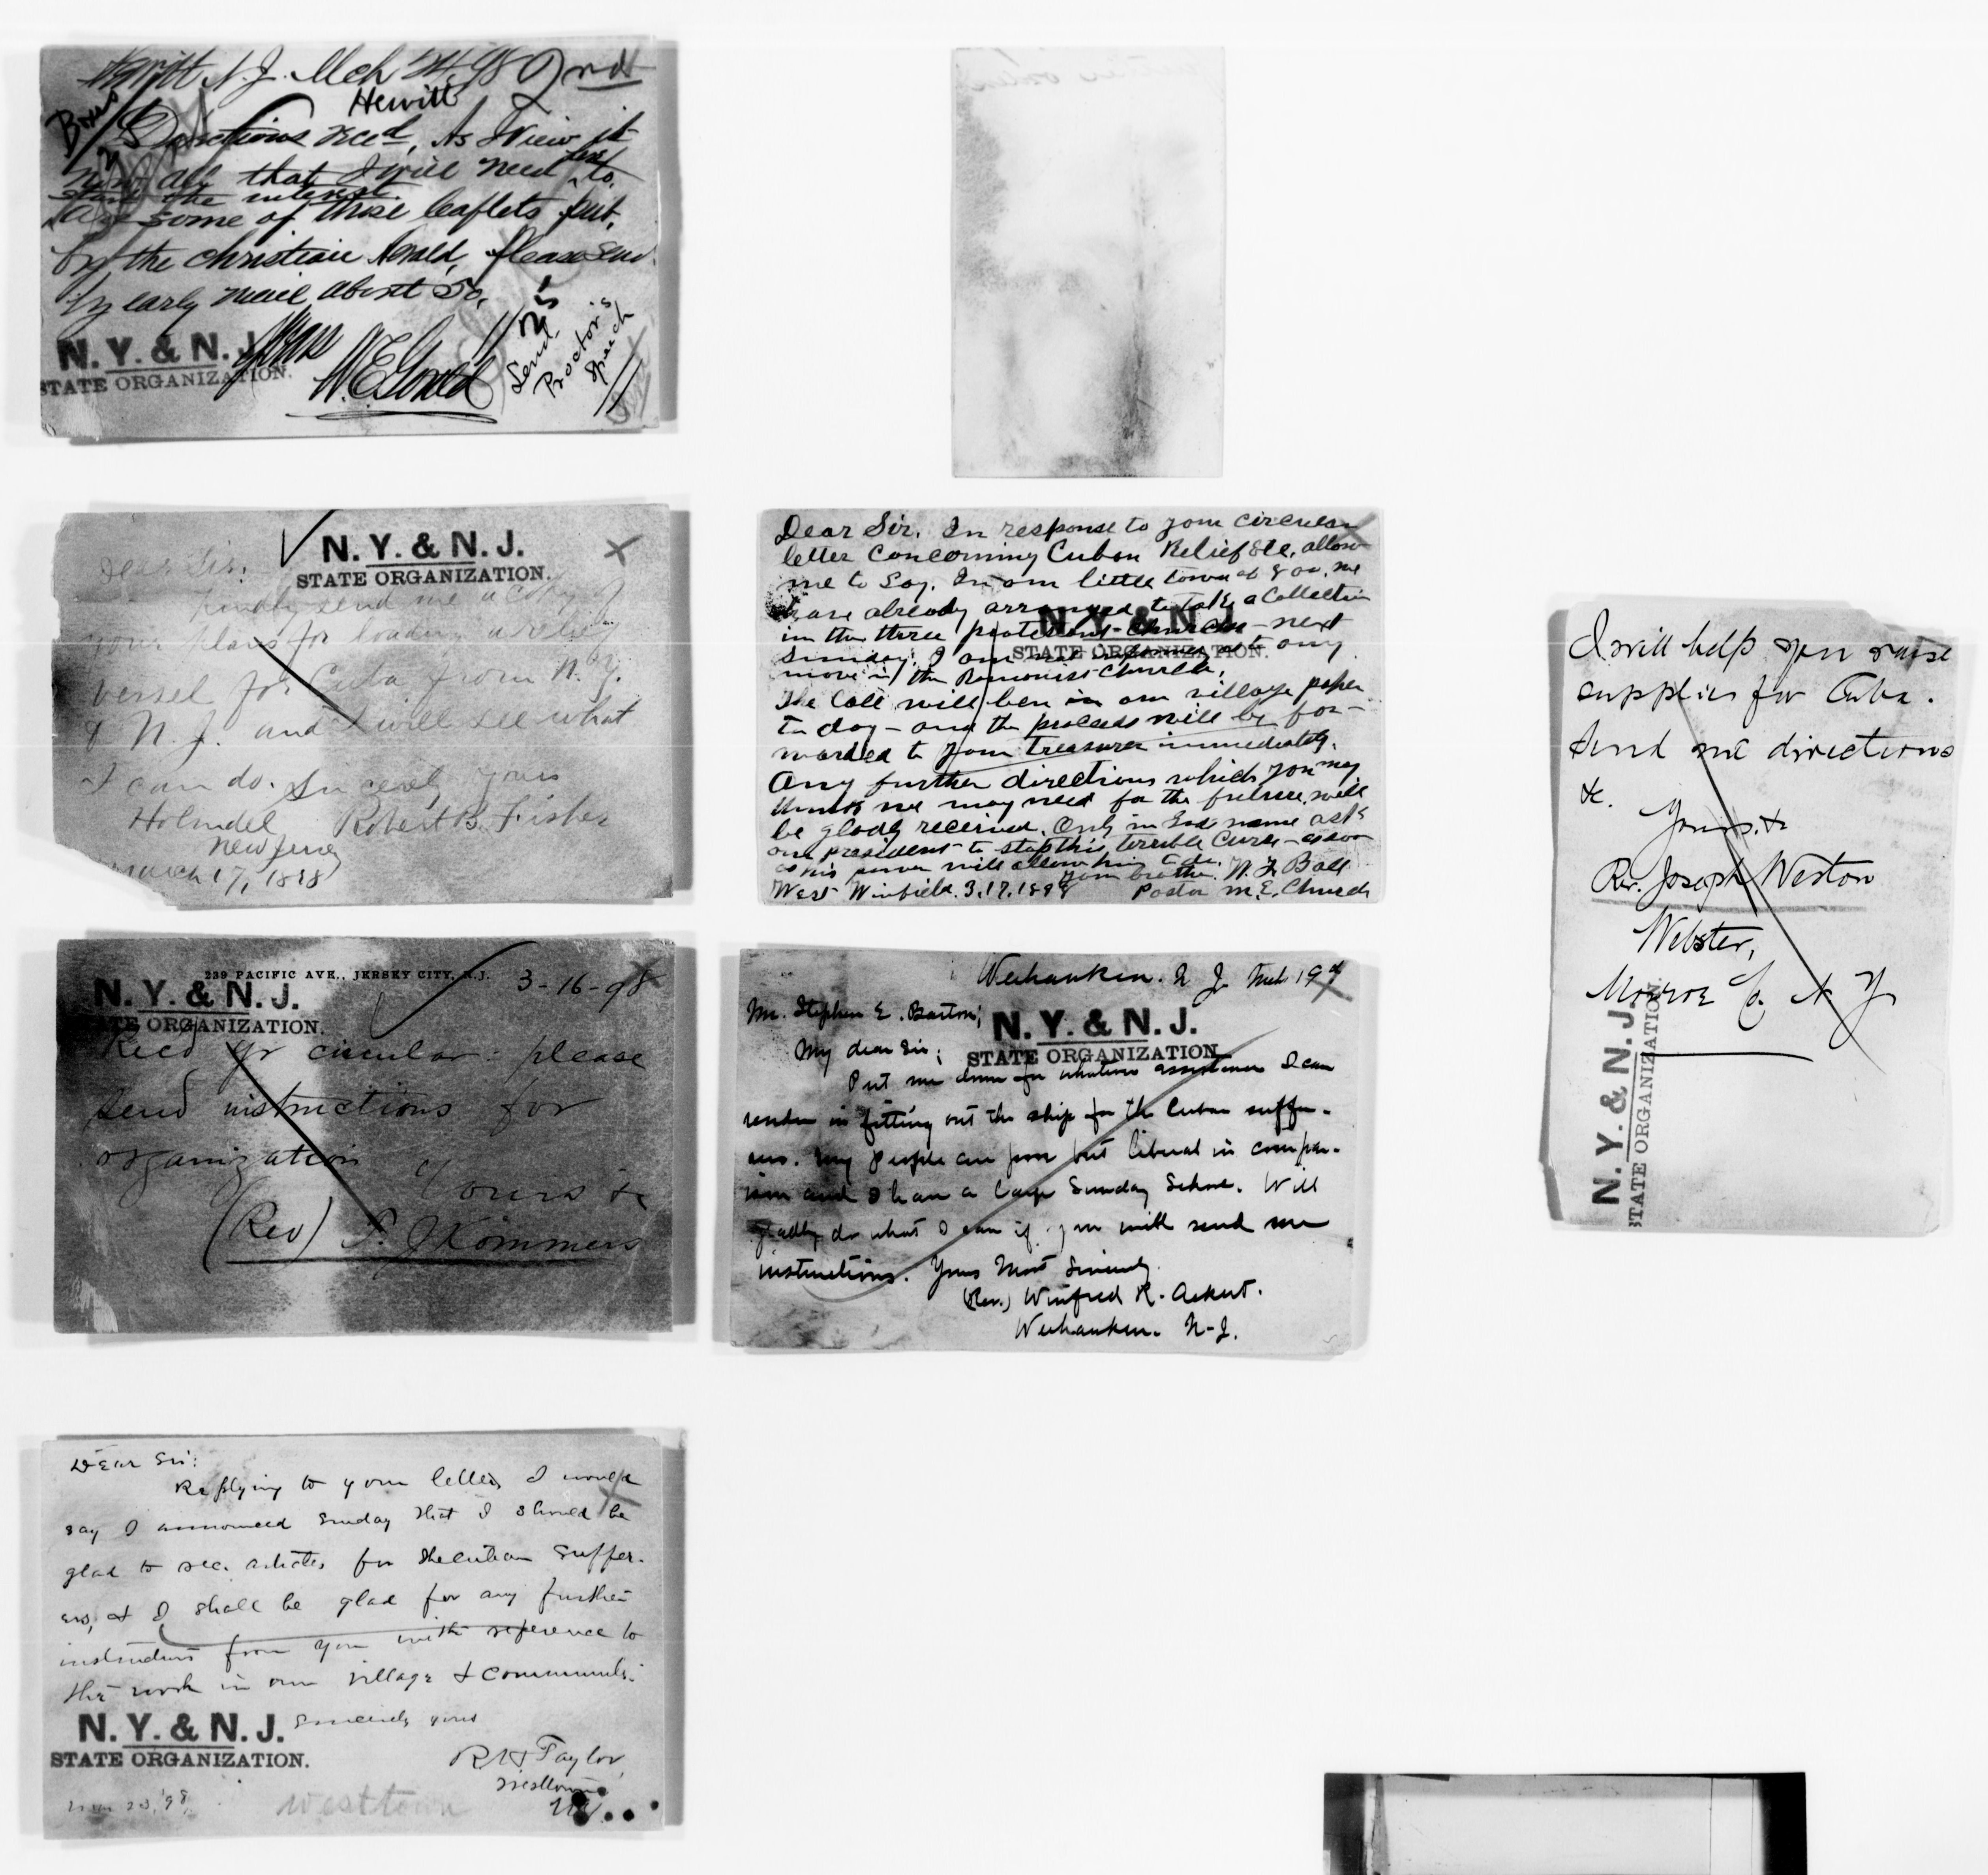 Hewitt N.J. Mch 24, 98 2nd
Hewitt
Directions recd, As I View it
now all that I will need to
start the interest
are some of those leaflets put.
by the Christian Herald, please send
by early mail about 50.
Yours
W.E. Gould
Send 25
Proctor's
Speech
N. Y. & N. J.
STATE ORGANIZATION.
N. Y. & N. J.
STATE ORGANIZATION.
Dear Sir:
Kindly send me a copy of
your plans for loading a relief
vessel for Cuba from N.Y.
& N.J. and I will see what
I can do. Sincerely yours
Holmdel Robert B. Fisher
New Jersey
March 17, 1898
Dear Sir. In response to your circular
letter concerning Cuban Relief etc, allow
me to say. In our little town of 800, we
have already arranged to take a Collection
in the three protestant churches next
Sunday. I am to any
move in the Romonist Church.
The Call will be in our village paper
to day - and the proceeds will be for-
warded to your Treasurer immediately.
Any further directions which you may
think we may need for the future, will
be gladly received. Only in God name ask
our president to stop this terrible Curse - as soon
as his power will allow him to do. Your brother. W. F. Ball
West Winfield. 3.17.1898 Pastor M.E. Church
N. Y. & N. J.
STATE ORGANIZATION.
239 PACIFIC AVE., JERSEY CITY, N.J. 3-16-98
N. Y. & N. J.
STATE ORGANIZATION.
Recd yr circular: please
send instructions for
organization
Yours &c
(Rev) P. J. Kommers
Weehawken. N.J. Mch 19th
Mr. Stephen E. Barton;
N. Y. & N. J.
STATE ORGANIZATION.
My dear Sir;
Put me down for whatever assistance I can
render in fitting out the ship for the Cuban suffer-
ers. My people are poor but liberal in compar-
ison and I have a large Sunday School. Will
gladly do what I can if you will send me
instructions. Yours Most Sincerely
(Rev.) Winfred R. Ackert.
Weehawken. N-J.
I will help you raise
supplies for Cuba.
Send me directions
&c.
Yours. &c
Rev. Joseph Weston
Webster,
Monroe Co. N Y
N. Y. & N. J.
STATE ORGANIZATION.
Dear Sir:
Replying to your letter, I would
say I announced Sunday that I should be
glad to rec. articles for the Cuban Suffer-
ers, & I shall be glad for any further
instructions from you with reference to
the work in our village & community.
Sincerely yours
R H Taylor,
Westtown
N.Y.
N. Y. & N. J.
STATE ORGANIZATION.
Westtown